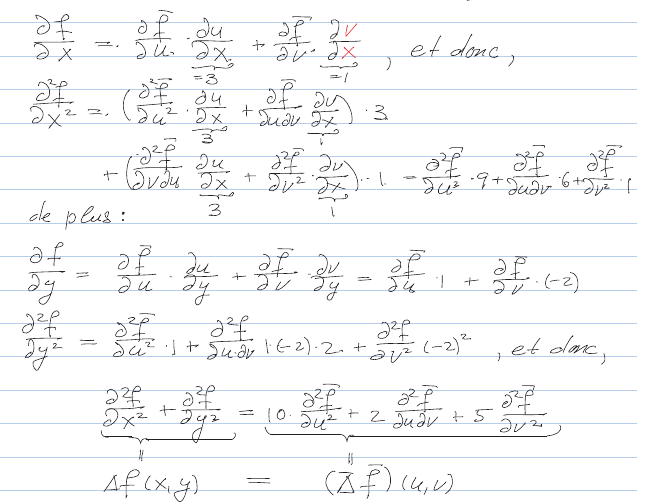 ∂f/∂x = ∂f̄/∂u · ∂u/∂x (=3) + ∂f̄/∂v · ∂v/∂x (=1) , et donc,
∂²f/∂x² = (∂²f̄/∂u² · ∂u/∂x (3) + ∂²f̄/∂u∂v ∂v/∂x (1)) · 3
+ (∂²f̄/∂v∂u ∂u/∂x (3) + ∂²f̄/∂v² · ∂v/∂x (1)) · 1 = ∂²f̄/∂u² · 9 + ∂²f̄/∂u∂v · 6 + ∂²f̄/∂v² · 1
de plus :
∂f/∂y = ∂f̄/∂u · ∂u/∂y + ∂f̄/∂v · ∂v/∂y = ∂f̄/∂u · 1 + ∂f̄/∂v · (-2)
∂²f/∂y² = ∂²f̄/∂u² · 1 + ∂²f/∂u·∂v 1·(-2)·2 + ∂²f/∂v² (-2)² , et donc,
∂²f/∂x² + ∂²f/∂y² = 10 · ∂²f̄/∂u² + 2 ∂²f̄/∂u∂v + 5 ∂²f̄/∂v²
= =
Δf(x,y) = (Δ̄ f̄)(u,v)